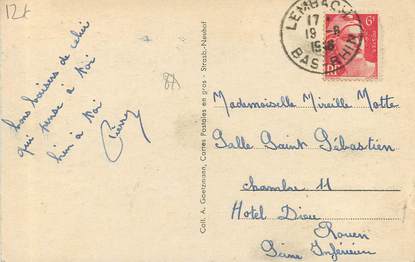 12t
Bons baisers de celui
qui pense à toi
bien à toi
Pierrot
Coll. A. Goetzmann, Cartes Postales en gros - Strasb.-Neuhof
LEMBACH
17
19 - 8
1946
BAS-RHIN
6F
RF
Mademoiselle Mireille Motte
Salle Saint Sébastien
chambre 11
Hotel Dieu
Rouen
Seine Inférieure